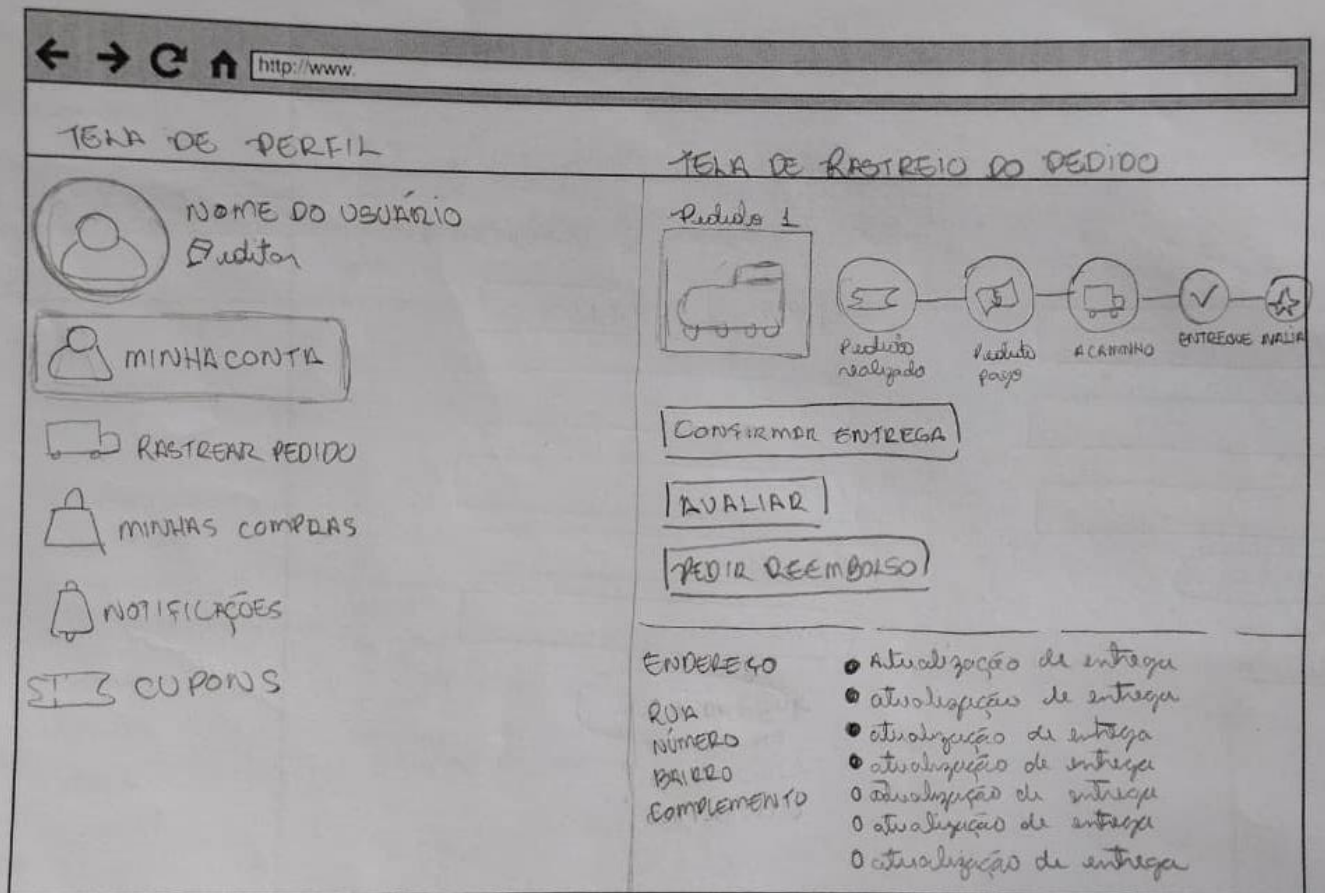 http://www.
TELA DE PERFIL
NOME DO USUÁRIO
editar
MINHA CONTA
RASTREAR PEDIDO
MINHAS COMPRAS
NOTIFICAÇÕES
CUPONS
TELA DE RASTREIO DO PEDIDO
Pedido 1
$
Pedido
realizado
Pedido
pago
A CAMINHO
ENTREGUE
AVALIA
CONFIRMAR ENTREGA
AVALIAR
PEDIR REEMBOLSO
ENDEREÇO
RUA
NÚMERO
BAIRRO
COMPLEMENTO
Atualização de entrega
atualização de entrega
atualização de entrega
atualização de entrega
atualização de entrega
atualização de entrega
atualização de entrega